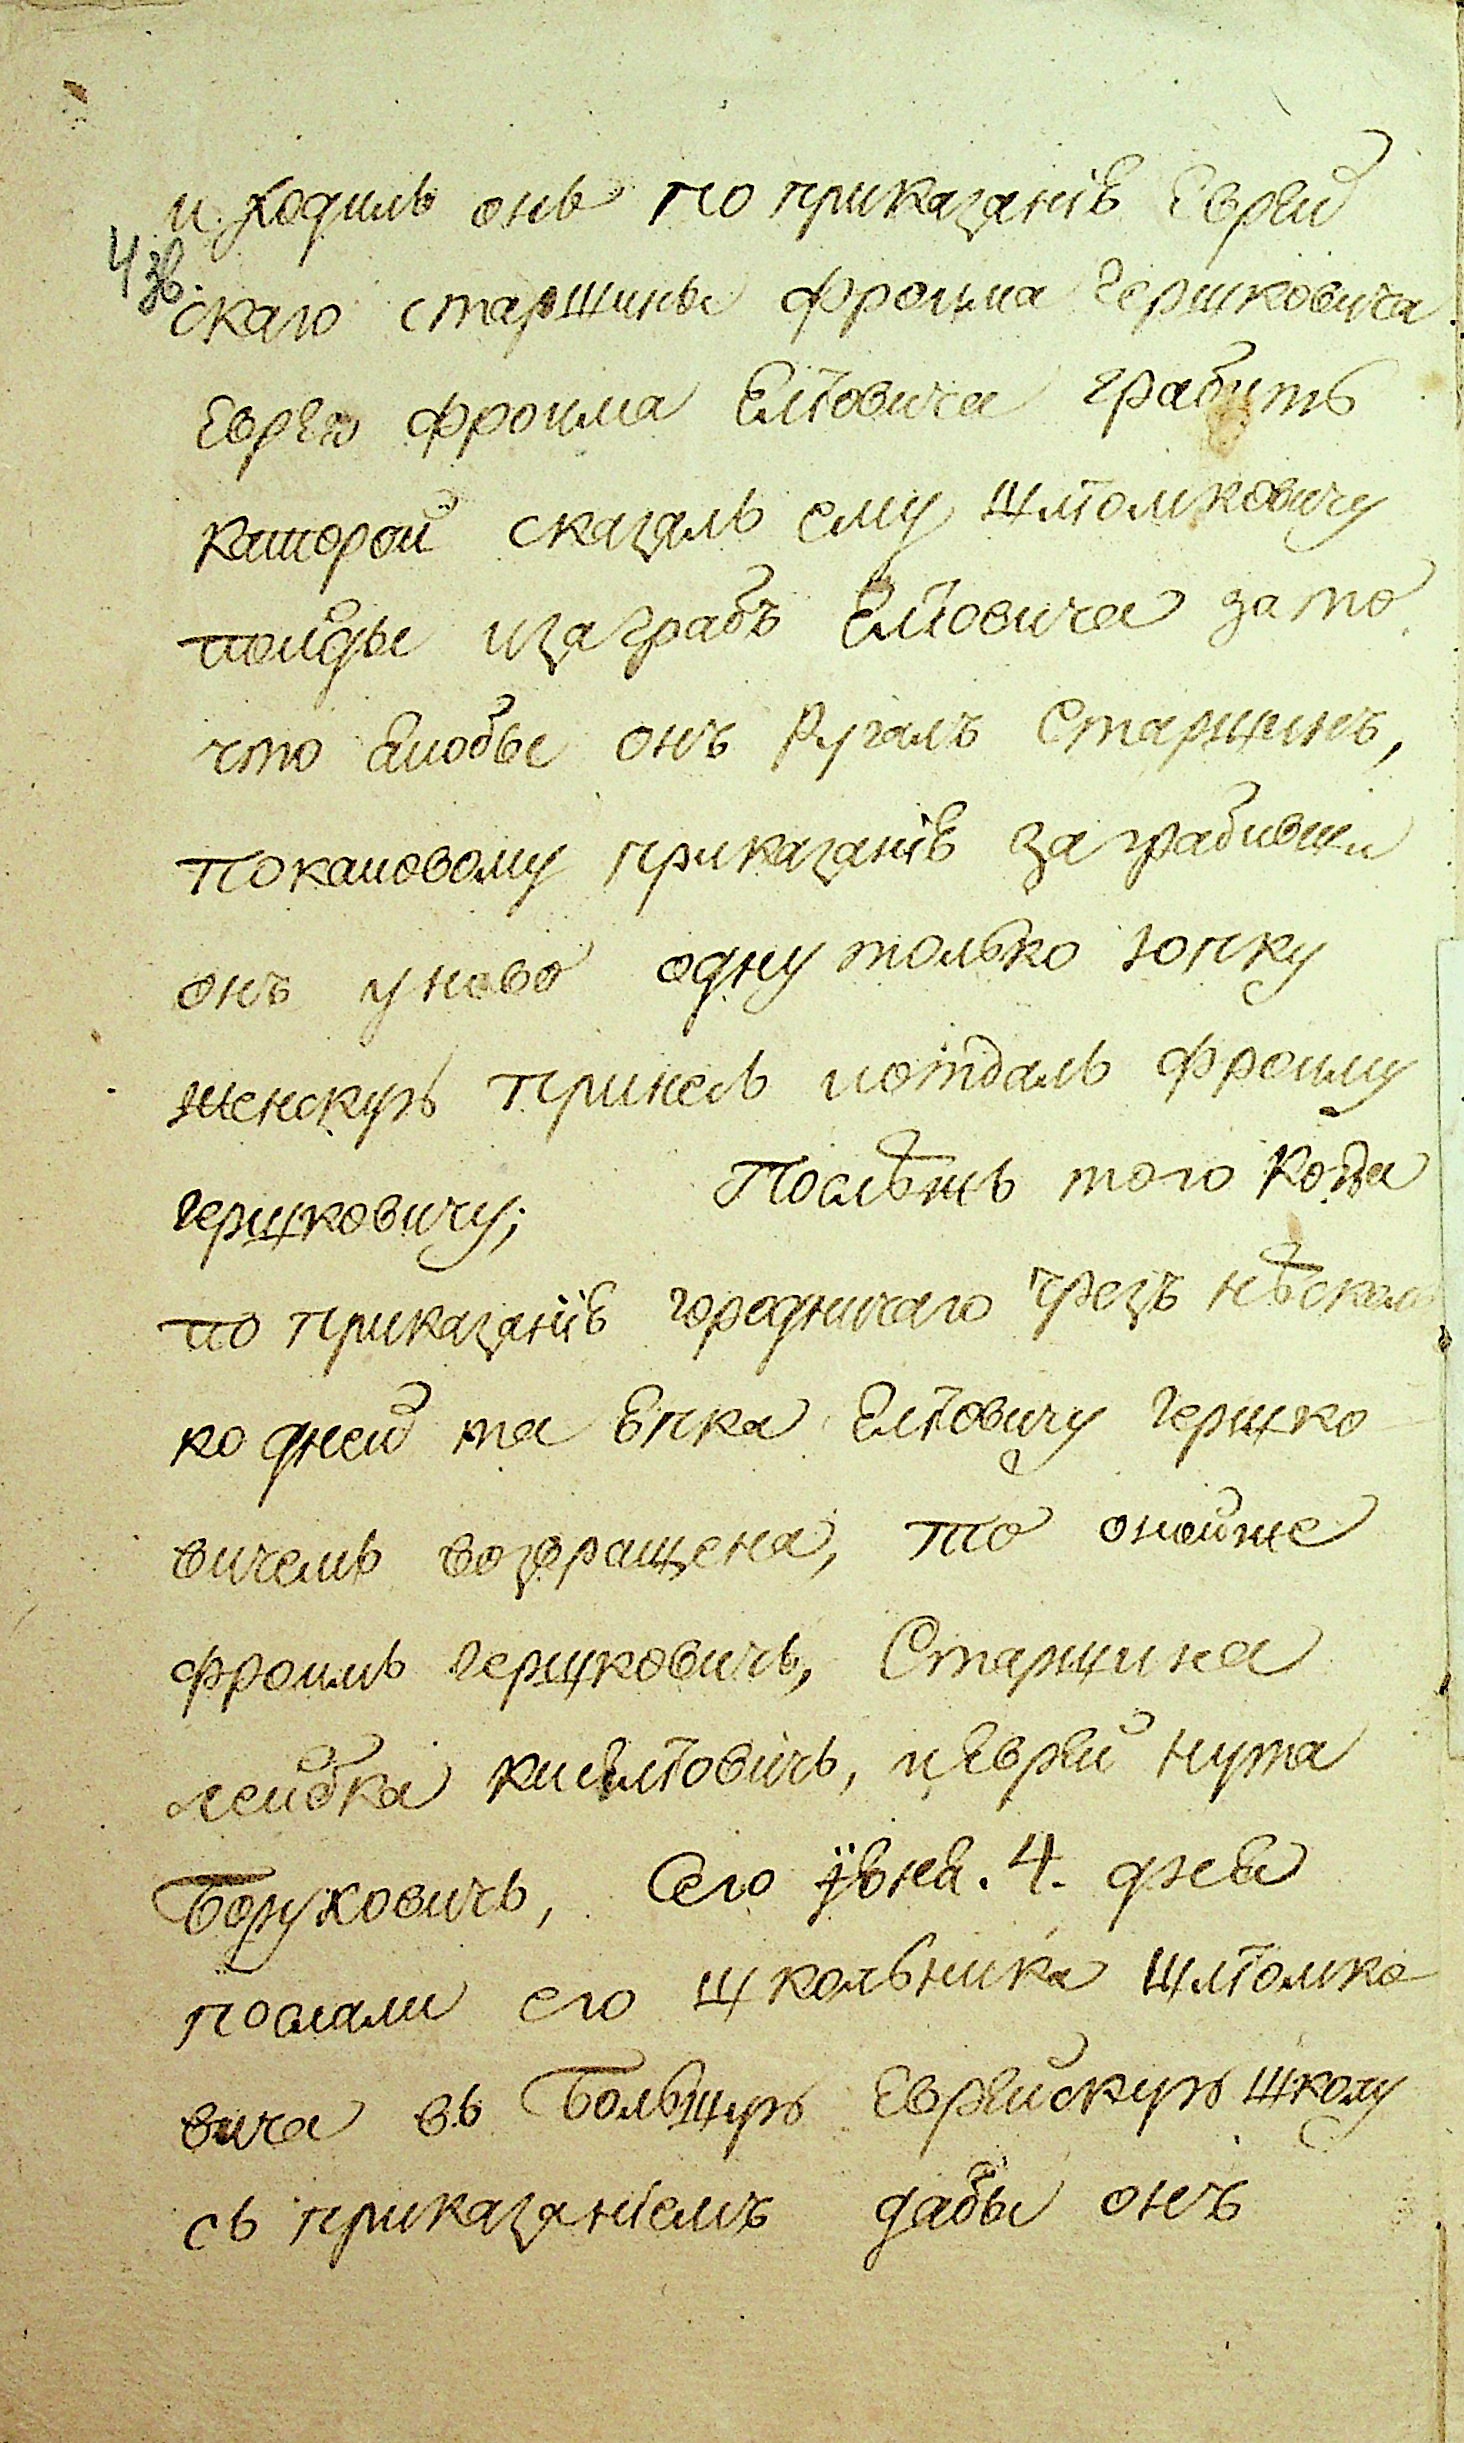 и ходилъ онъ по приказанїю Еврей
4 зв.
скаго старшины Фроима Гершковича
Еврея Фроима Елїовича грабить
каторой сказалъ ему Шлїомковичу
пойды изаграбъ Елїовича за то
что якобы онъ ругалъ Старшинъ,
покаковому приказанїю заграбивши
онъ унево одну только юпку
женскую принелъ иотдалъ Фроиму
Гершковичу; Послѣжъ того когда
по приказанїю городничаго чрезъ нѣсколь
ко дней та юпка Елїовичу Гершко
вичемъ возвращена, то онойже
Фроимъ Гершковичъ, Старшина
Лейбка Киселїовичъ, иЕврей Нута
Боруховичъ, Сего їюня. 4. дня
послали его школьника Шлїомко
вича въ Большую Еврейскую школу
съ приказанїемъ дабы онъ